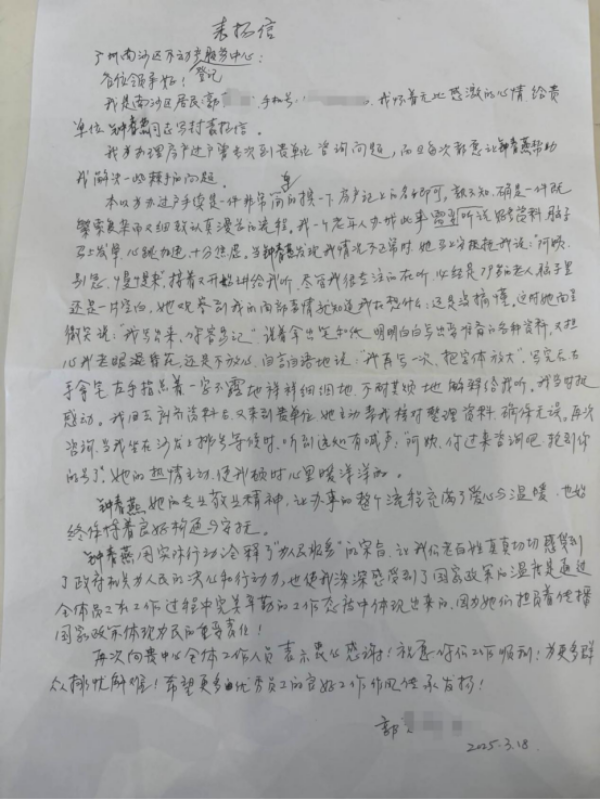 表扬信
广州南沙区不动产登记服务中心：
各位领导好！
我是南沙区居民郭 手机号： 我怀着无比感激的心情给贵
单位钟春燕同志写封表扬信。
我为办理房产过户曾多次到贵单位咨询问题，而且每次都意让钟春燕帮助
我解决一些棘手的问题。
本以为办过户手续是一件非常简单的换一下房产证上的名字即可。孰不知，确是一件既
繁琐复杂而又细致认真漫长的流程。我一个老年人办此事听说好多资料，脑子
马上发晕，心跳加速，十分焦虑。当钟春燕发现我情况不正常时，她马上安抚我说："阿姨，
别急，慢慢来"。接着又开始讲给我听，尽管我很专注的在听，必竟是79岁的老人，脑子里
还是一片空白，她观察到我的面部表情就知道我在想什么：还是没搞懂。这时她面呈
微笑说："我写出来，你容易记"，说着拿出笔和纸，明明白白写出要准备的各种资料，又担
心我老眼混昏花，还是不放心，自言自语地说："我再写一次，把字体放大"，写完后右
手拿笔左手指点着一字不露地详详细细地、不耐其烦地解释给我听。我当时很
感动。我回去备齐资料后又来到贵单位，她主动帮我核对整理资料，确保无误。再次
咨询，当我坐在沙发上排号等候时，听到远处有喊声："阿姨，你过来咨询吧，轮到你
的号了"。她的热情主动，使我顿时心里暖洋洋的。
钟春燕，她的专业敬业精神，让办事的整个流程充满了爱心与温暖，也始
终保持着良好沟通与安抚。
钟春燕用实际行动诠释了"为人民服务"的宗旨，让我们老百姓真真切切感受到
了政府机关为人民的决心和行动力，也使我深深感受到了国家政策的温度是通过
全体员工在工作过程中完美辛勤的工作态度中体现出来的，因为她们担负着传播
国家政策体现为民的重要责任！
再次向贵中心全体工作人员表示衷心感谢！祝愿你们工作顺利！为更多群
众排忧解难！希望更多的优秀员工的良好工作作风传承发扬！
郭
2025.3.18.